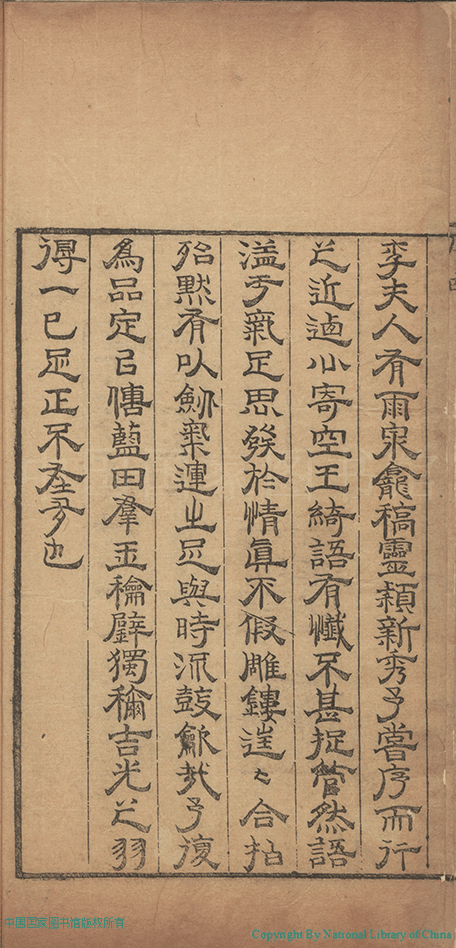 李夫人有雨泉龕稿靈穎新秀予嘗序而行
之近遁心寄空王綺語有懺不甚捉管然語
溢于氣足思發於情真不假雕鏤逞〻合拈
殆默有以劒氣運之足與時流鼓歙哉予復
為品定已儁藍田羣玉穐壁獨稱吉光之羽
得一已足正不在多也
中国国家图书馆版权所有
Copyright By National Library of China